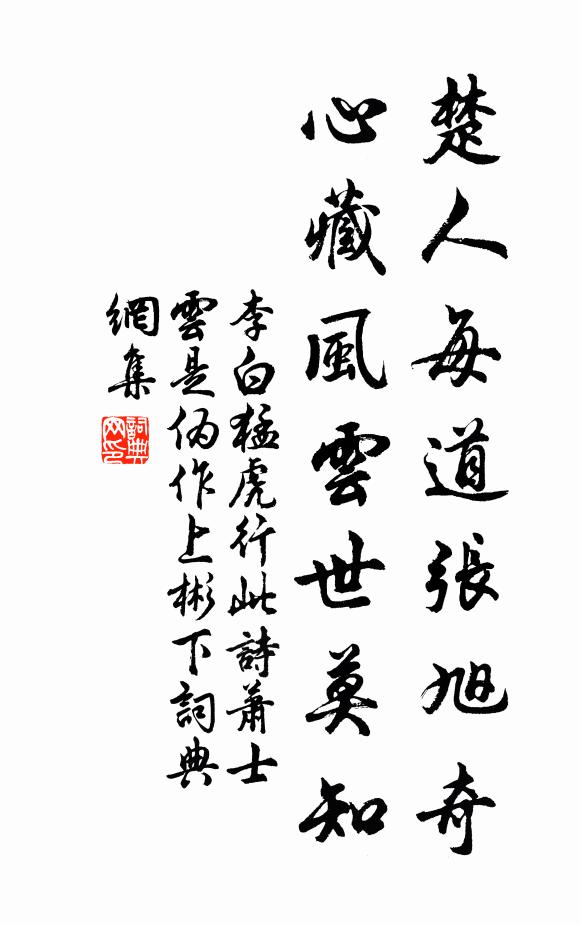 楚人每道張旭奇
心藏風雲世莫知
李白猛虎行此詩蕭士
雲是偽作上彬下詞典
網集
詞典網印